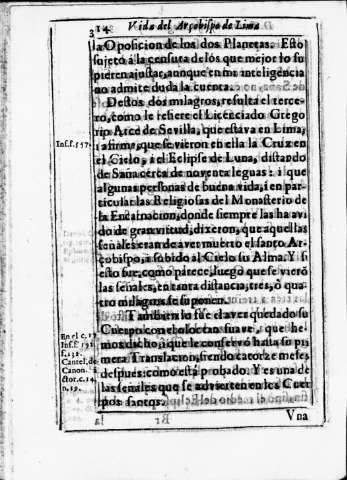 314 Vida del Arçobispo de Lima
la Oposicion de los dos Planetas. Esto
sujeto á la censura de lós que mejor lo su
pieren ajustar, aunque en mi inteligencia
no admite duda la cuenta.
Destos dos milagros, resulta el terce-
ro, como le refiere el Licenciado Grego
rio Arce de Sevilla, que estava en Lima,
Inf. f. 157.
i afirma, que se vieron en ella la Cruz en
el Cielo, i el Eclipse de Luna, distando
de Saña cerca de noventa leguas: i que
algunas personas de buena vida, i en par-
ticular las Religiosas del Monasterio de
la Encarnacion, donde siempre las ha avi
do de gran virtud, dixeron, que aquellas
señales eran de aver muerto el santo Ar-
çobispo, i subido al Cielo su Alma. Y si
esto fue, como parece, luego que se vierõ
las señales, en tanta distancia, tres, ò qua
tro milagros se suponen.
Tambien lo fue el aver quedado su
Cuerpo con el olor tan suave, que he-
mos dicho, i que le conservó hasta su pri
mera Translacion, siendo catorze meses
despues: como está probado. Y es una de
las señales que se advierten en los Cuer
pos santos.
En el c. 19
Inf. f. 191.
f. 132.
Cantel. de
Canon.
c. 14.
n. 19.
Vna